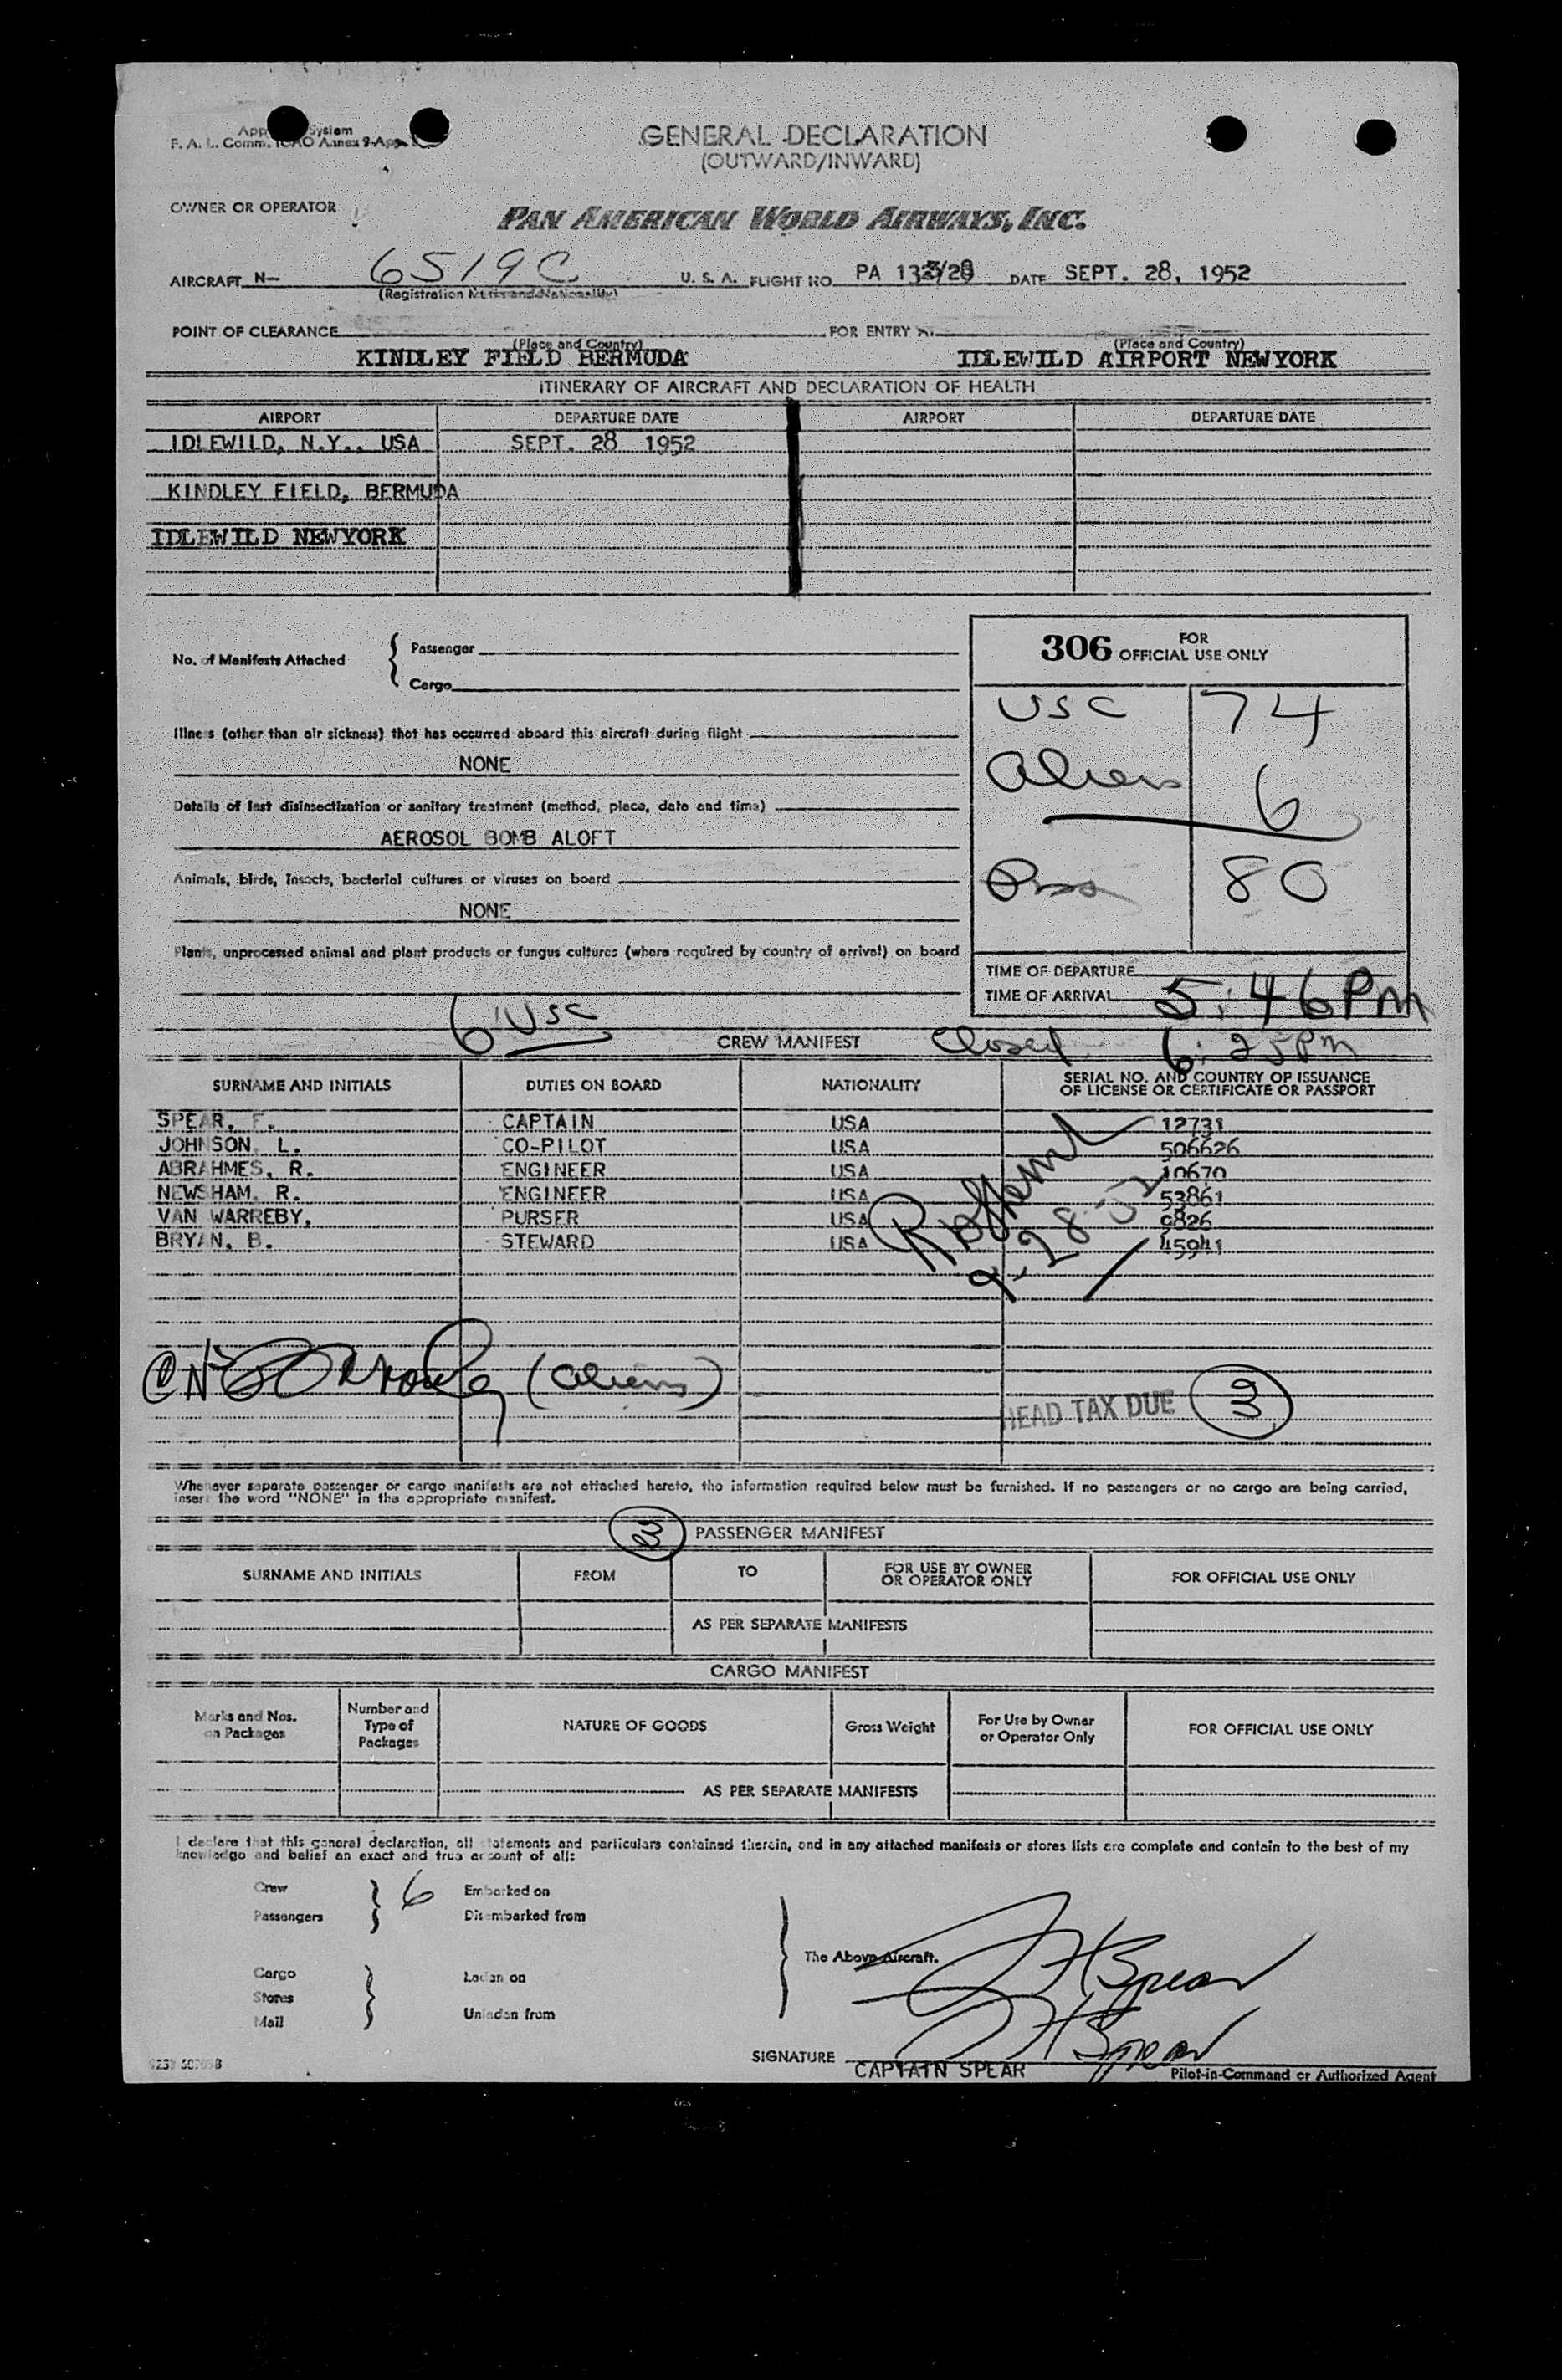 App System
F. A. L. Comm. ICAO Annex 9-App.
GENERAL DECLARATION
(OUTWARD/INWARD)
OWNER OR OPERATOR
PAN AMERICAN WORLD AIRWAYS, INC.
AIRCRAFT N- 6519C U. S. A. FLIGHT NO. PA DATE SEPT. 28, 1952
(Registration Marks and Nationality)
POINT OF CLEARANCE FOR ENTRY AT
(Place and Country) (Place and Country)
KINDLEY FIELD BERMUDA IDLEWILD AIRPORT NEWYORK
ITINERARY OF AIRCRAFT AND DECLARATION OF HEALTH
AIRPORT DEPARTURE DATE AIRPORT DEPARTURE DATE
IDLEWILD, N.Y., USA SEPT. 28 1952
KINDLEY FIELD, BERMUDA
IDLEWILD NEWYORK
No. of Manifests Attached { Passenger
Cargo
306 FOR
OFFICIAL USE ONLY
USC 74
Aliens 6
Pass 80
Illness (other than air sickness) that has occurred aboard this aircraft during flight
NONE
Details of last disinsectization or sanitary treatment (method, place, date and time)
AEROSOL BOMB ALOFT
Animals, birds, insects, bacterial cultures or viruses on board
NONE
Plants, unprocessed animal and plant products or fungus cultures (where required by country of arrival) on board
TIME OF DEPARTURE
TIME OF ARRIVAL 5:46PM
6 USC
CREW MANIFEST Closed 6:25PM
SURNAME AND INITIALS DUTIES ON BOARD NATIONALITY SERIAL NO. AND COUNTRY OF ISSUANCE
OF LICENSE OR CERTIFICATE OR PASSPORT
SPEAR, F. CAPTAIN USA 12731
JOHNSON, L. CO-PILOT USA 506626
ABRAHMES, R. ENGINEER USA 10670
NEWSHAM, R. ENGINEER USA 53861
VAN WARREBY, PURSER USA 9826
BRYAN, B. STEWARD USA 45941
9-28-52
(Aliens)
HEAD TAX DUE 3
Whenever separate passenger or cargo manifests are not attached hereto, the information required below must be furnished. If no passengers or no cargo are being carried,
insert the word "NONE" in the appropriate manifest.
3 PASSENGER MANIFEST
SURNAME AND INITIALS FROM TO FOR USE BY OWNER
OR OPERATOR ONLY FOR OFFICIAL USE ONLY
AS PER SEPARATE MANIFESTS
CARGO MANIFEST
Marks and Nos.
on Packages Number and
Type of
Packages NATURE OF GOODS Gross Weight For Use by Owner
or Operator Only FOR OFFICIAL USE ONLY
AS PER SEPARATE MANIFESTS
I declare that this general declaration, all statements and particulars contained therein, and in any attached manifests or stores lists are complete and contain to the best of my
knowledge and belief an exact and true account of all:
Crew } 6 Embarked on
Passengers Disembarked from
} The Above Aircraft.
Cargo } Laden on
Stores
Mail Unladen from
FHSpear
FHSpear
SIGNATURE
CAPTAIN SPEAR Pilot-in-Command or Authorized Agent